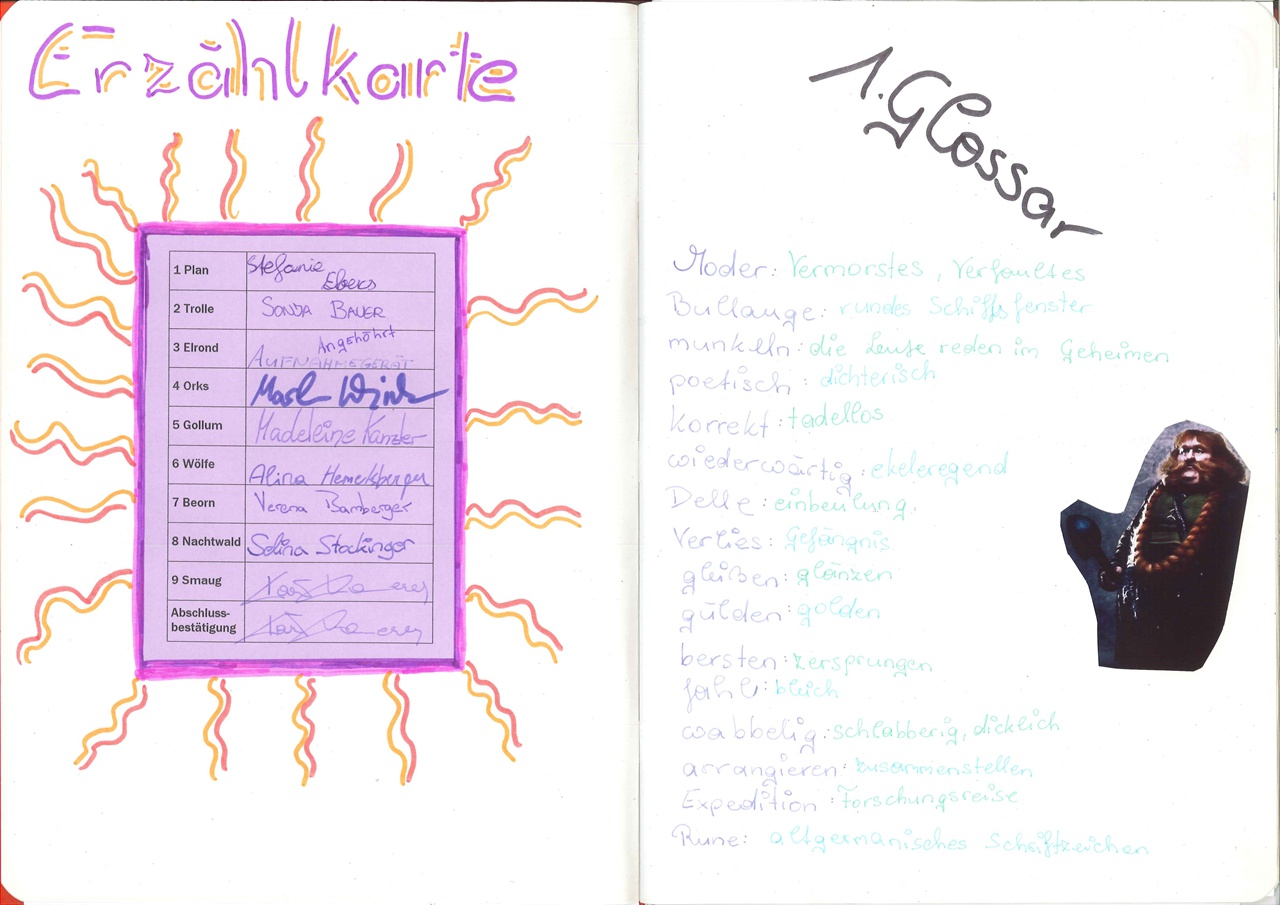 Erzählkarte
1 Plan Stefanie Ebers
2 Trolle SONJA BAUER
3 Elrond Angehöhrt AUFNAHMEGERÄT
4 Orks
5 Gollum Madeleine Kanzler
6 Wölfe Alina
7 Beorn Verena Bamberger
8 Nachtwald Selina Stockinger
9 Smaug
Abschluss-
bestätigung
1. Glossar
Moder: Vermorstes, Verfaultes
Bullauge: rundes Schiffsfenster
munkeln: die Leute reden im Geheimen
poetisch: dichterisch
korrekt: tadellos
wiederwärtig: ekeleregend
Delle: einbeulung.
Verlies: Gefängnis
gleißen: glänzen
gülden: golden
bersten: zersprungen
fahl: bleich
wabbelig: schlabberig, dicklich
arrangieren: zusammenstellen
Expedition: Forschungsreise
Rune: altgermanisches Schriftzeichen